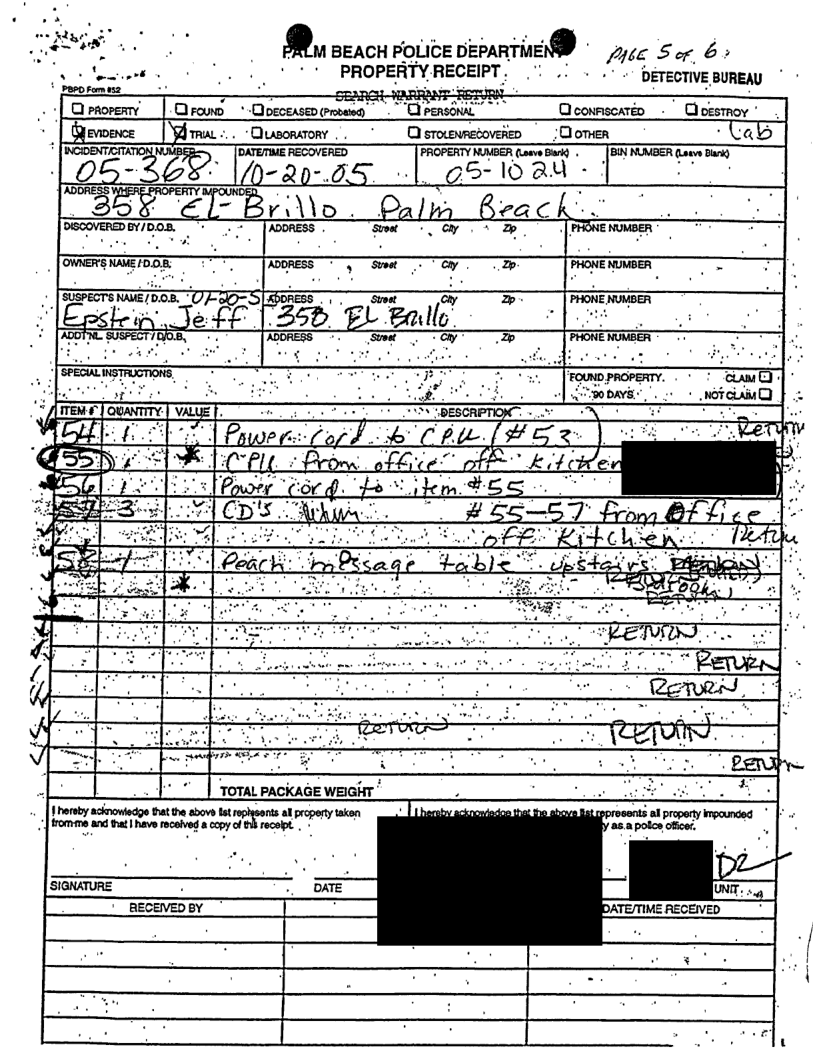 PALM BEACH POLICE DEPARTMENT PAGE 5 of 6
PROPERTY RECEIPT DETECTIVE BUREAU
PBPD Form #52 SEARCH WARRANT RETURN
PROPERTY FOUND DECEASED (Probated) PERSONAL CONFISCATED DESTROY
EVIDENCE TRIAL LABORATORY STOLEN/RECOVERED OTHER Lab
INCIDENT/CITATION NUMBER DATE/TIME RECOVERED PROPERTY NUMBER (Leave Blank) BIN NUMBER (Leave Blank)
05-368 10-20-05 05-1024
ADDRESS WHERE PROPERTY IMPOUNDED
358 EL-Brillo Palm Beach
DISCOVERED BY / D.O.B. ADDRESS Street City Zip PHONE NUMBER
OWNER'S NAME / D.O.B. ADDRESS Street City Zip PHONE NUMBER
SUSPECT'S NAME / D.O.B. 01-20-5 ADDRESS Street City Zip PHONE NUMBER
Epstein Jeff 358 EL Brillo
ADDT'NL. SUSPECT / D.O.B. ADDRESS Street City Zip PHONE NUMBER
SPECIAL INSTRUCTIONS FOUND PROPERTY CLAIM
90 DAYS NOT CLAIM
ITEM # QUANTITY VALUE DESCRIPTION
54 1 Power cord to CPU (#53) Return
55 1 * CPU from office off kitchen
56 1 Power cord to item #55
57 3 CD's #55-57 from Office
off Kitchen Return
58 1 Peach message table upstairs
* RETURN
RETURN
RETURN
RETURN
RETURN RETURN
RETURN
TOTAL PACKAGE WEIGHT
I hereby acknowledge that the above list represents all property taken I hereby acknowledge that the above list represents all property impounded
from me and that I have received a copy of this receipt. y as a police officer.
D2
SIGNATURE DATE UNIT
RECEIVED BY DATE/TIME RECEIVED